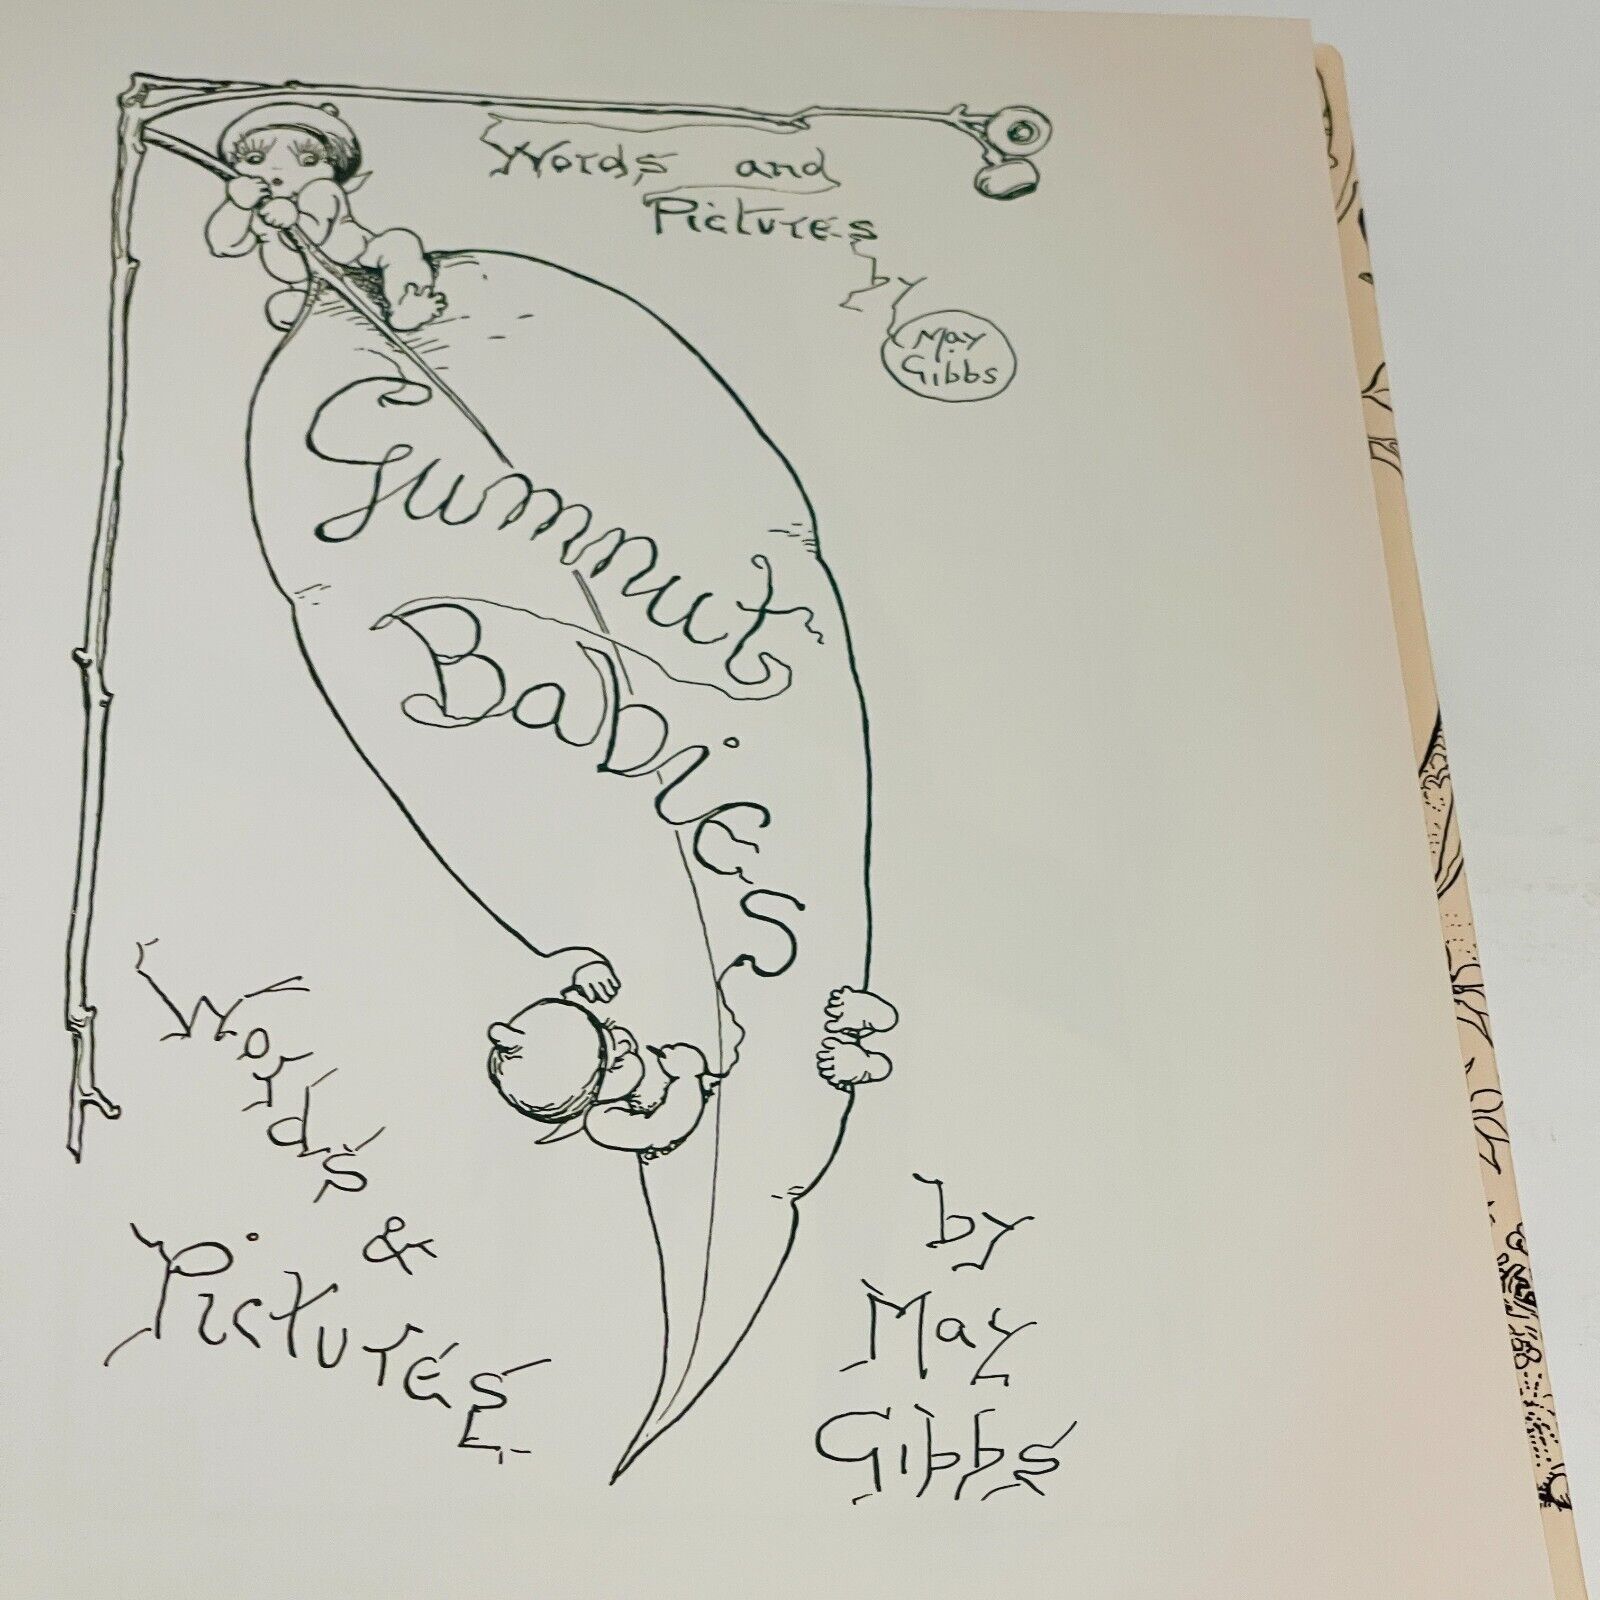 Words and
Pictures
by
May
Gibbs
Gumnut
Babies
Words
&
Pictures
by
May
Gibbs